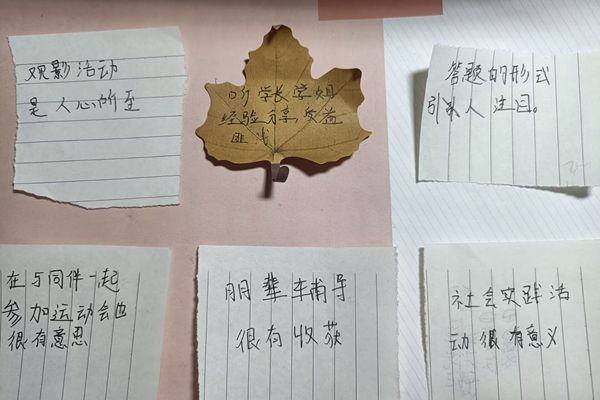 观影活动
是人心所至
听学长学姐
经验分享,受益
匪浅
答题的形式
引来人注目。
在与同伴一起
参加运动会也
很有意思
朋辈辅导
很有收获
社会实践活
动很有意义